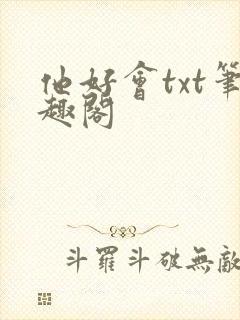 他好會txt筆
趣閣
斗羅斗破無敵